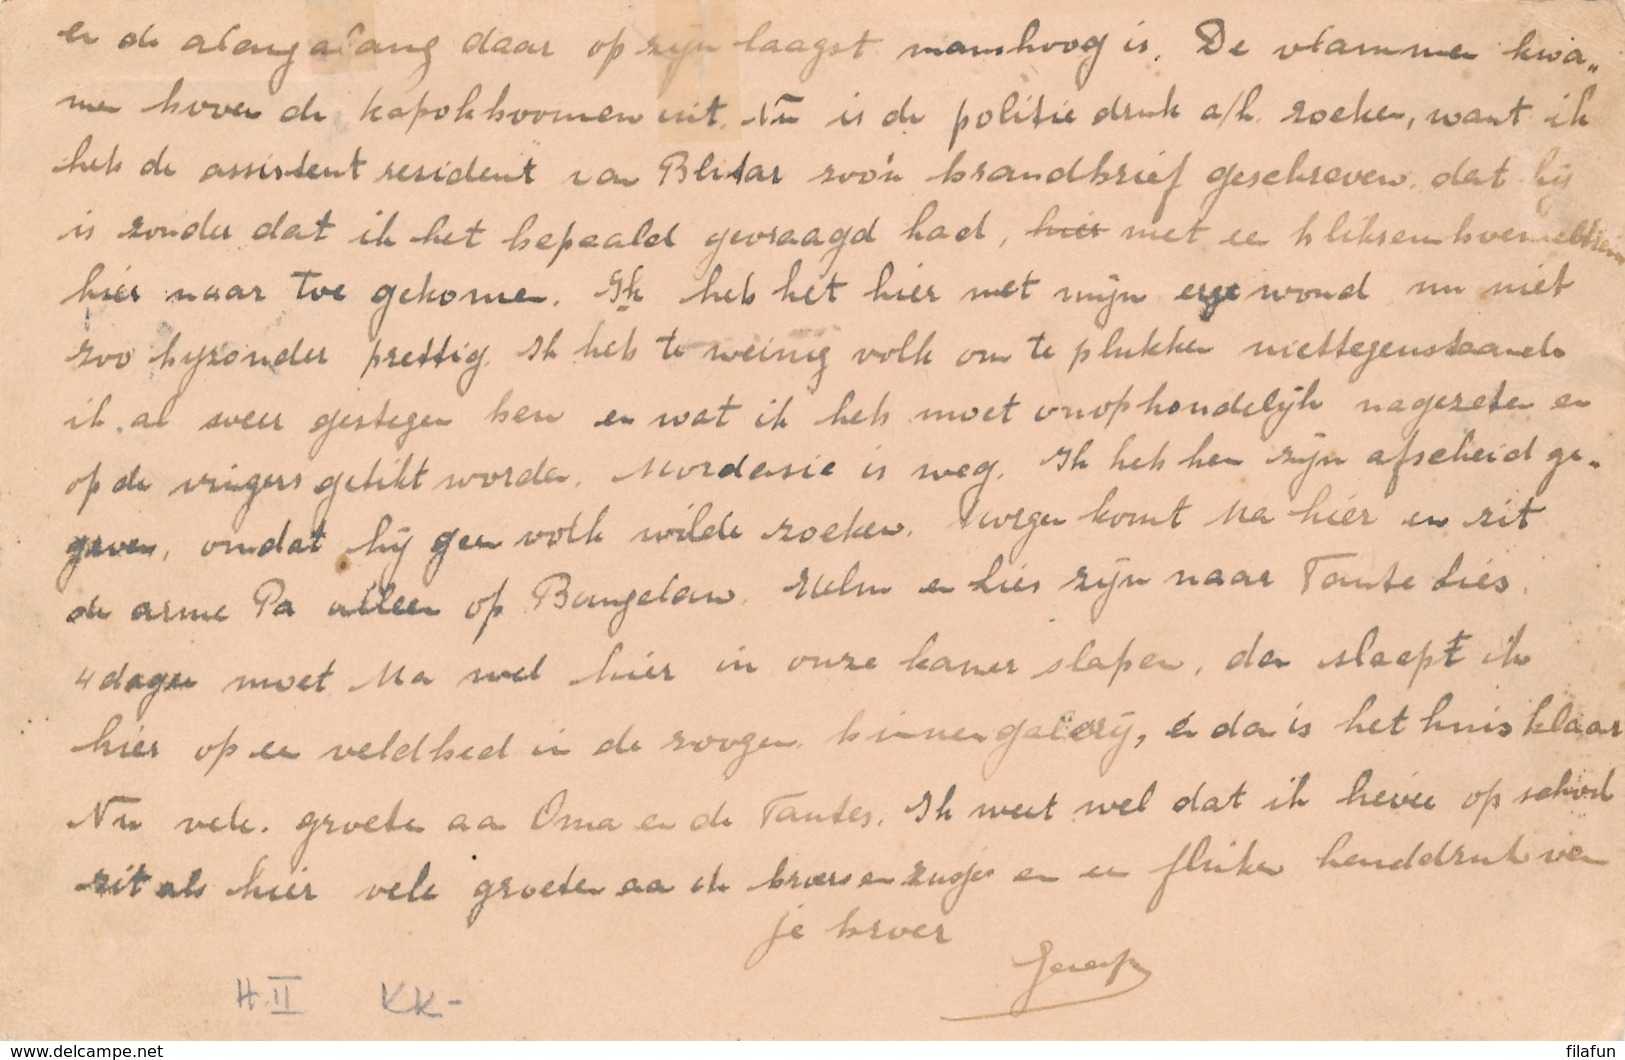 en de alang alang daar op zijn laagst manshoog is. De vlammen kwa„
men boven de kapokboomen uit. Nu is de politie druk a/h. zoeken, want ik
heb de assistent resident van Blitar zoo'n brandbrief geschreven, dat hij
is zonder dat ik het bepaald gevraagd had, hier met een bliksem
hier naar toe gekomen. Ik heb het hier met mijn wond nu niet
zoo byzonder prettig. Ik heb te weinig volk om te plukken niettegenstaande
ik al weer gestegen ben en wat ik heb moet onophoudelijk nagezeten en
op de vingers getikt worden. is weg. Ik heb hem zijn afscheid ge-
geven, omdat hij geen volk wilde zoeken. Morgen komt Ma hier en zit
de arme Pa alleen op Bangelan. en Lies zijn naar Tante Lies.
4 dagen moet Ma wel hier in onze kamer slapen, dan slaapt ik
hier op een veldbed in de binnengalerij, en dan is het huis klaar
Nu vele groeten aan Oma en de Tantes. Ik weet wel dat ik liever op school
zit als hier vele groeten aan de broers en zusjes en een flinken handdruk van
je broer
H II KK-
www.delcampe.net filafun